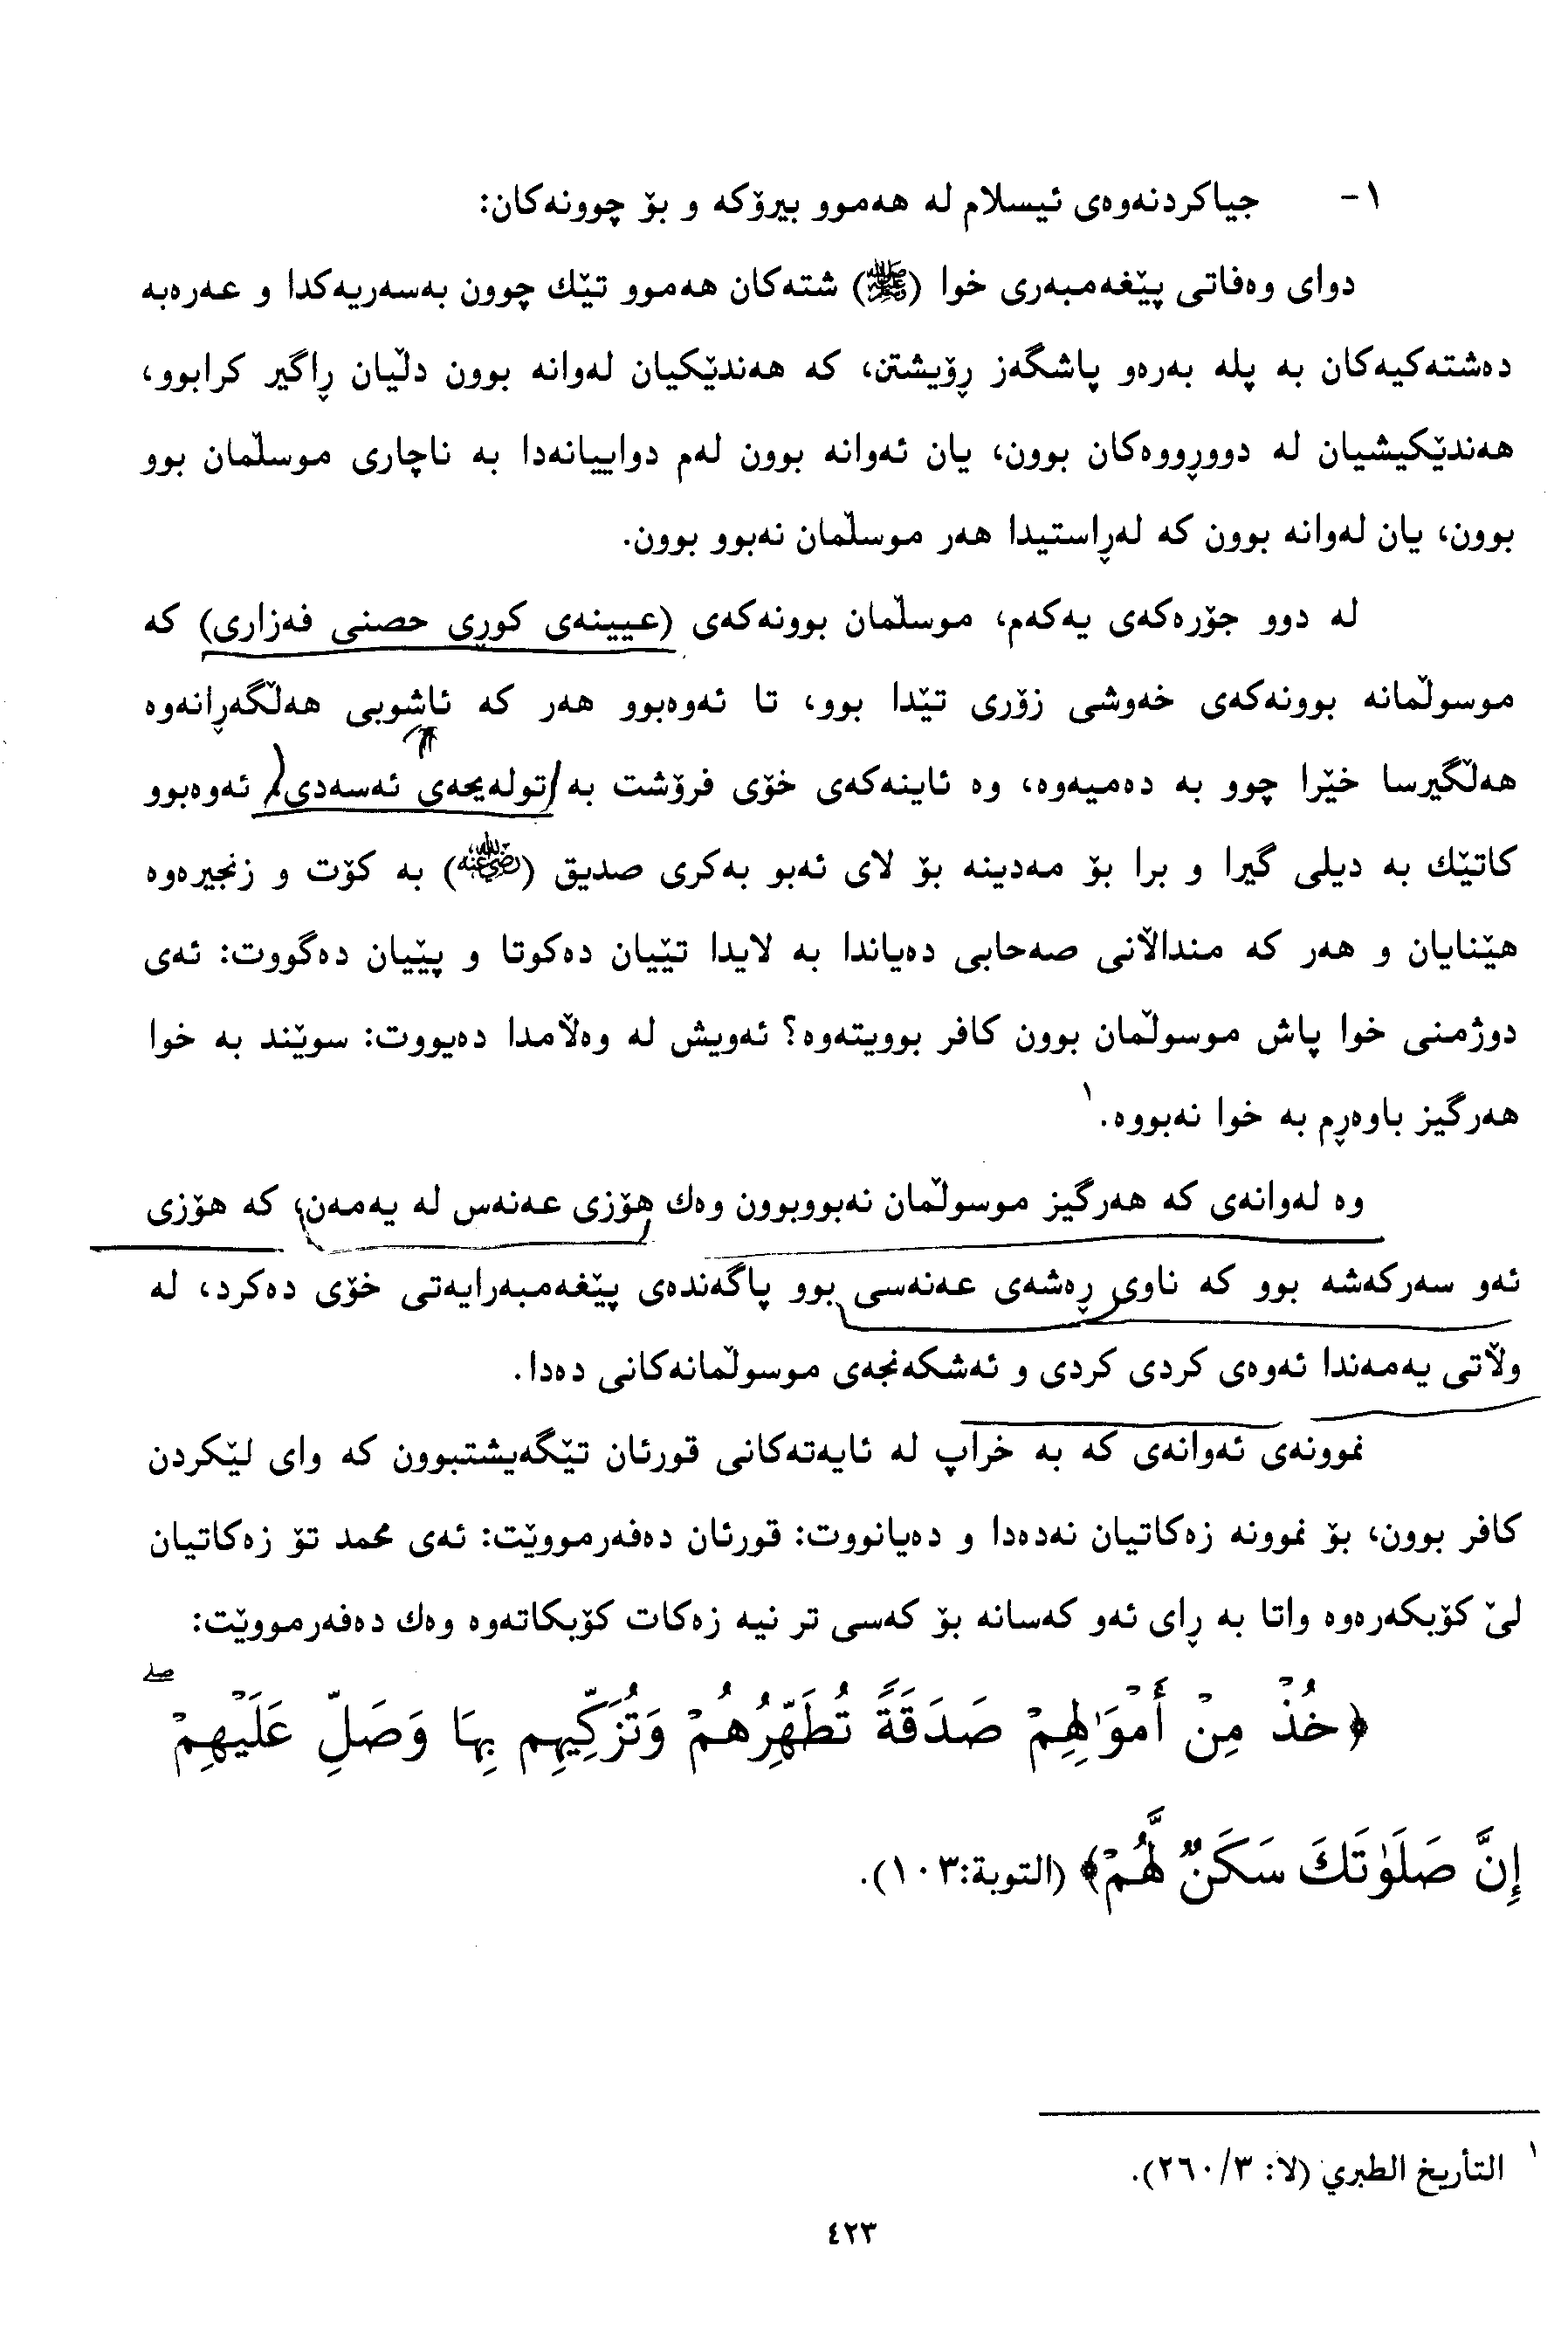 ١- جیاکردنەوەی ئیسلام لە هەموو بیرۆکە و بۆ چوونەکان:
دوای وەفاتی پێغەمبەری خوا (ﷺ) شتەکان هەموو تێك چوون بەسەریەکدا و عەرەبە
دەشتەکیەکان بە پلە بەرەو پاشگەز ڕۆیشتن، کە هەندێکیان لەوانە بوون دڵیان ڕاگیر کرابوو،
هەندێکیشیان لە دووڕووەکان بوون، یان ئەوانە بوون لەم دواییانەدا بە ناچاری موسڵمان بوو
بوون، یان لەوانە بوون کە لەڕاستیدا هەر موسڵمان نەبوو بوون.
لە دوو جۆرەکەی یەکەم، موسڵمان بوونەکەی (عیینەی کوڕی حصنی فەزاری) کە
موسوڵمانە بوونەکەی خەوشی زۆری تێدا بوو، تا ئەوەبوو هەر کە ئاشوبی هەڵگەڕانەوە
هەڵگیرسا خێرا چوو بە دەمیەوە، وە ئاینەکەی خۆی فرۆشت بە (تولەیحەی ئەسەدی) ئەوەبوو
کاتێك بە دیلی گیرا و برا بۆ مەدینە بۆ لای ئەبو بەکری صدیق (رضي الله عنه) بە کۆت و زنجیرەوە
هێنایان و هەر کە منداڵانی صەحابی دەیاندا بە لایدا تێیان دەکوتا و پێیان دەگووت: ئەی
دوژمنی خوا پاش موسوڵمان بوون کافر بوویتەوە؟ ئەویش لە وەڵامدا دەیووت: سوێند بە خوا
هەرگیز باوەڕم بە خوا نەبووە.١
وە لەوانەی کە هەرگیز موسوڵمان نەبووبوون وەك هۆزی عەنەس لە یەمەن، کە هۆزی
ئەو سەرکەشە بوو کە ناوی ڕەشەی عەنەسی بوو پاگەندەی پێغەمبەرایەتی خۆی دەکرد، لە
وڵاتی یەمەندا ئەوەی کردی کردی و ئەشکەنجەی موسوڵمانەکانی دەدا.
نموونەی ئەوانەی کە بە خراپ لە ئایەتەکانی قورئان تێگەیشتبوون کە وای لێکردن
کافر بوون، بۆ نموونە زەکاتیان نەدەدا و دەیانووت: قورئان دەفەرمووێت: ئەی محمد تۆ زەکاتیان
لێ کۆبکەرەوە واتا بە ڕای ئەو کەسانە بۆ کەسی تر نیە زەکات کۆبکاتەوە وەك دەفەرمووێت:
﴿خُذْ مِنْ أَمْوَٰلِهِمْ صَدَقَةً تُطَهِّرُهُمْ وَتُزَكِّيهِم بِهَا وَصَلِّ عَلَيْهِمْ ۖ
إِنَّ صَلَوٰتَكَ سَكَنٌ لَّهُمْ﴾ (التوبة:١٠٣).
١ التأريخ الطبري (لا: ٢٦٠/٣).
٤٢٣